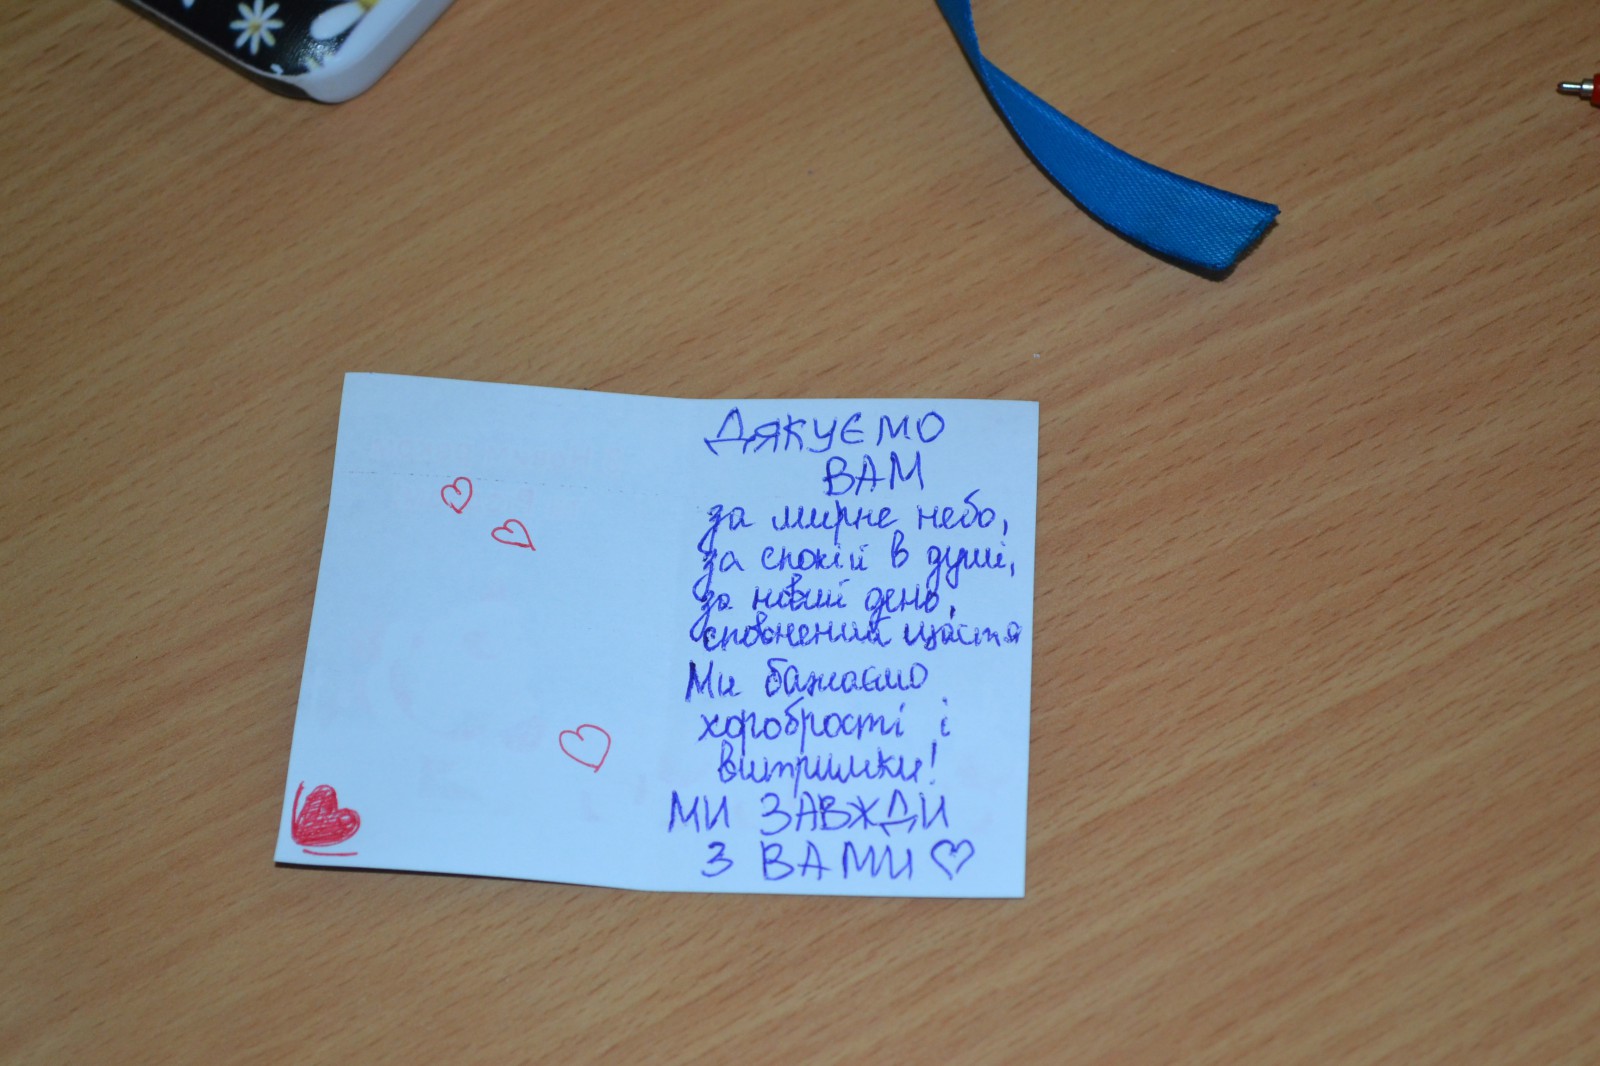 ДЯКУЄМО
ВАМ
за мирне небо,
за спокій в душі,
за новий день,
сповнений щастя
Ми бажаємо
хоробрості і
витримки!
МИ ЗАВЖДИ
З ВАМИ